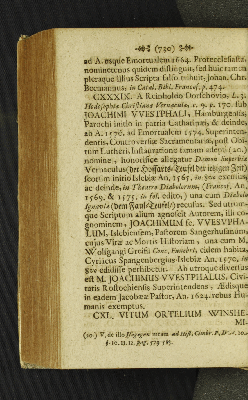 (730)
ad A. esque Emortualem 1664. Protecclesiastæ,
nominetenus quidem distingvit, sed huic tamen
pleraque illius Scripta falso tribuit, Johan. Chr.
Becmanus, in Catal. Bibl. Francof. p. 474.
CXXXIX. A Reinholdo Dorschovio, L. 3.
Hodosophiæ Christianæ Vernaculæ, c. 9. p. 170. sub
JOACHIMI VVESTPHALI, Hamburgensis,
Parochi initio in patria Cathariniani, & deinde
ab A. 1570, ad Emortualem 1574. Superinten-
dentis, Controversiæ Sacramentariæ, post Obi-
tum Lutheri, Instauratione famam adepti (20.)
nomine, honorifice allegatur Damon Superbiæ
Vernaculus (der Hoffarts-Teufel der ietzigen Zeit)
seorsim initio Islebiæ An. 1565. in 8vo excusus,
ac deinde, in Theatro Diabolorum, (Francof. An.
1569, & 1575, in fol. edito,) una cum Diabolo
Ignaviæ (dem Faul-Teufel) recusus. Sed utrum-
que Scriptum alium agnoscit Autorem, illi co-
gnominem, JOACHIMUM sc. VVESTPHA-
LUM, Islebiensem, Pastorem Sangerhusanum,
cujus Vitæ ac Mortis Historiam, una cum M.
Wolfgangi Greifi Conc. Funebri, eidem habita,
Cyriacus Spangenbergius Islebiæ An. 1570, in
8vo edidisse perhibetur. Ab utroque diversus
est M. JOACHIMUS VVESTPHALUS, Civi-
tatis Rostochiensis Superintendens, Ædisque
in eadem Jacobææ Pastor, An. 1624. rebus Hu-
manis exemptus.
CXL. VITUM ORTELIUM WINSHE-
MI-